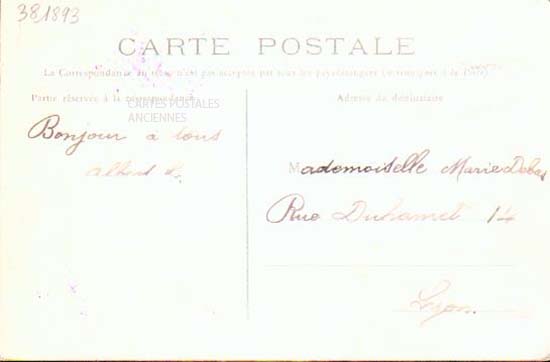 381893
CARTE POSTALE
La Correspondance au recto n'est pas acceptée par tous les pays étrangers (se renseigner à la Poste)
Partie réservée à la correspondance
Adresse du destinataire
CARTES POSTALES
ANCIENNES
Bonjour à tous
Albert
Mademoiselle Marie
Rue Duhamel 14
Lyon